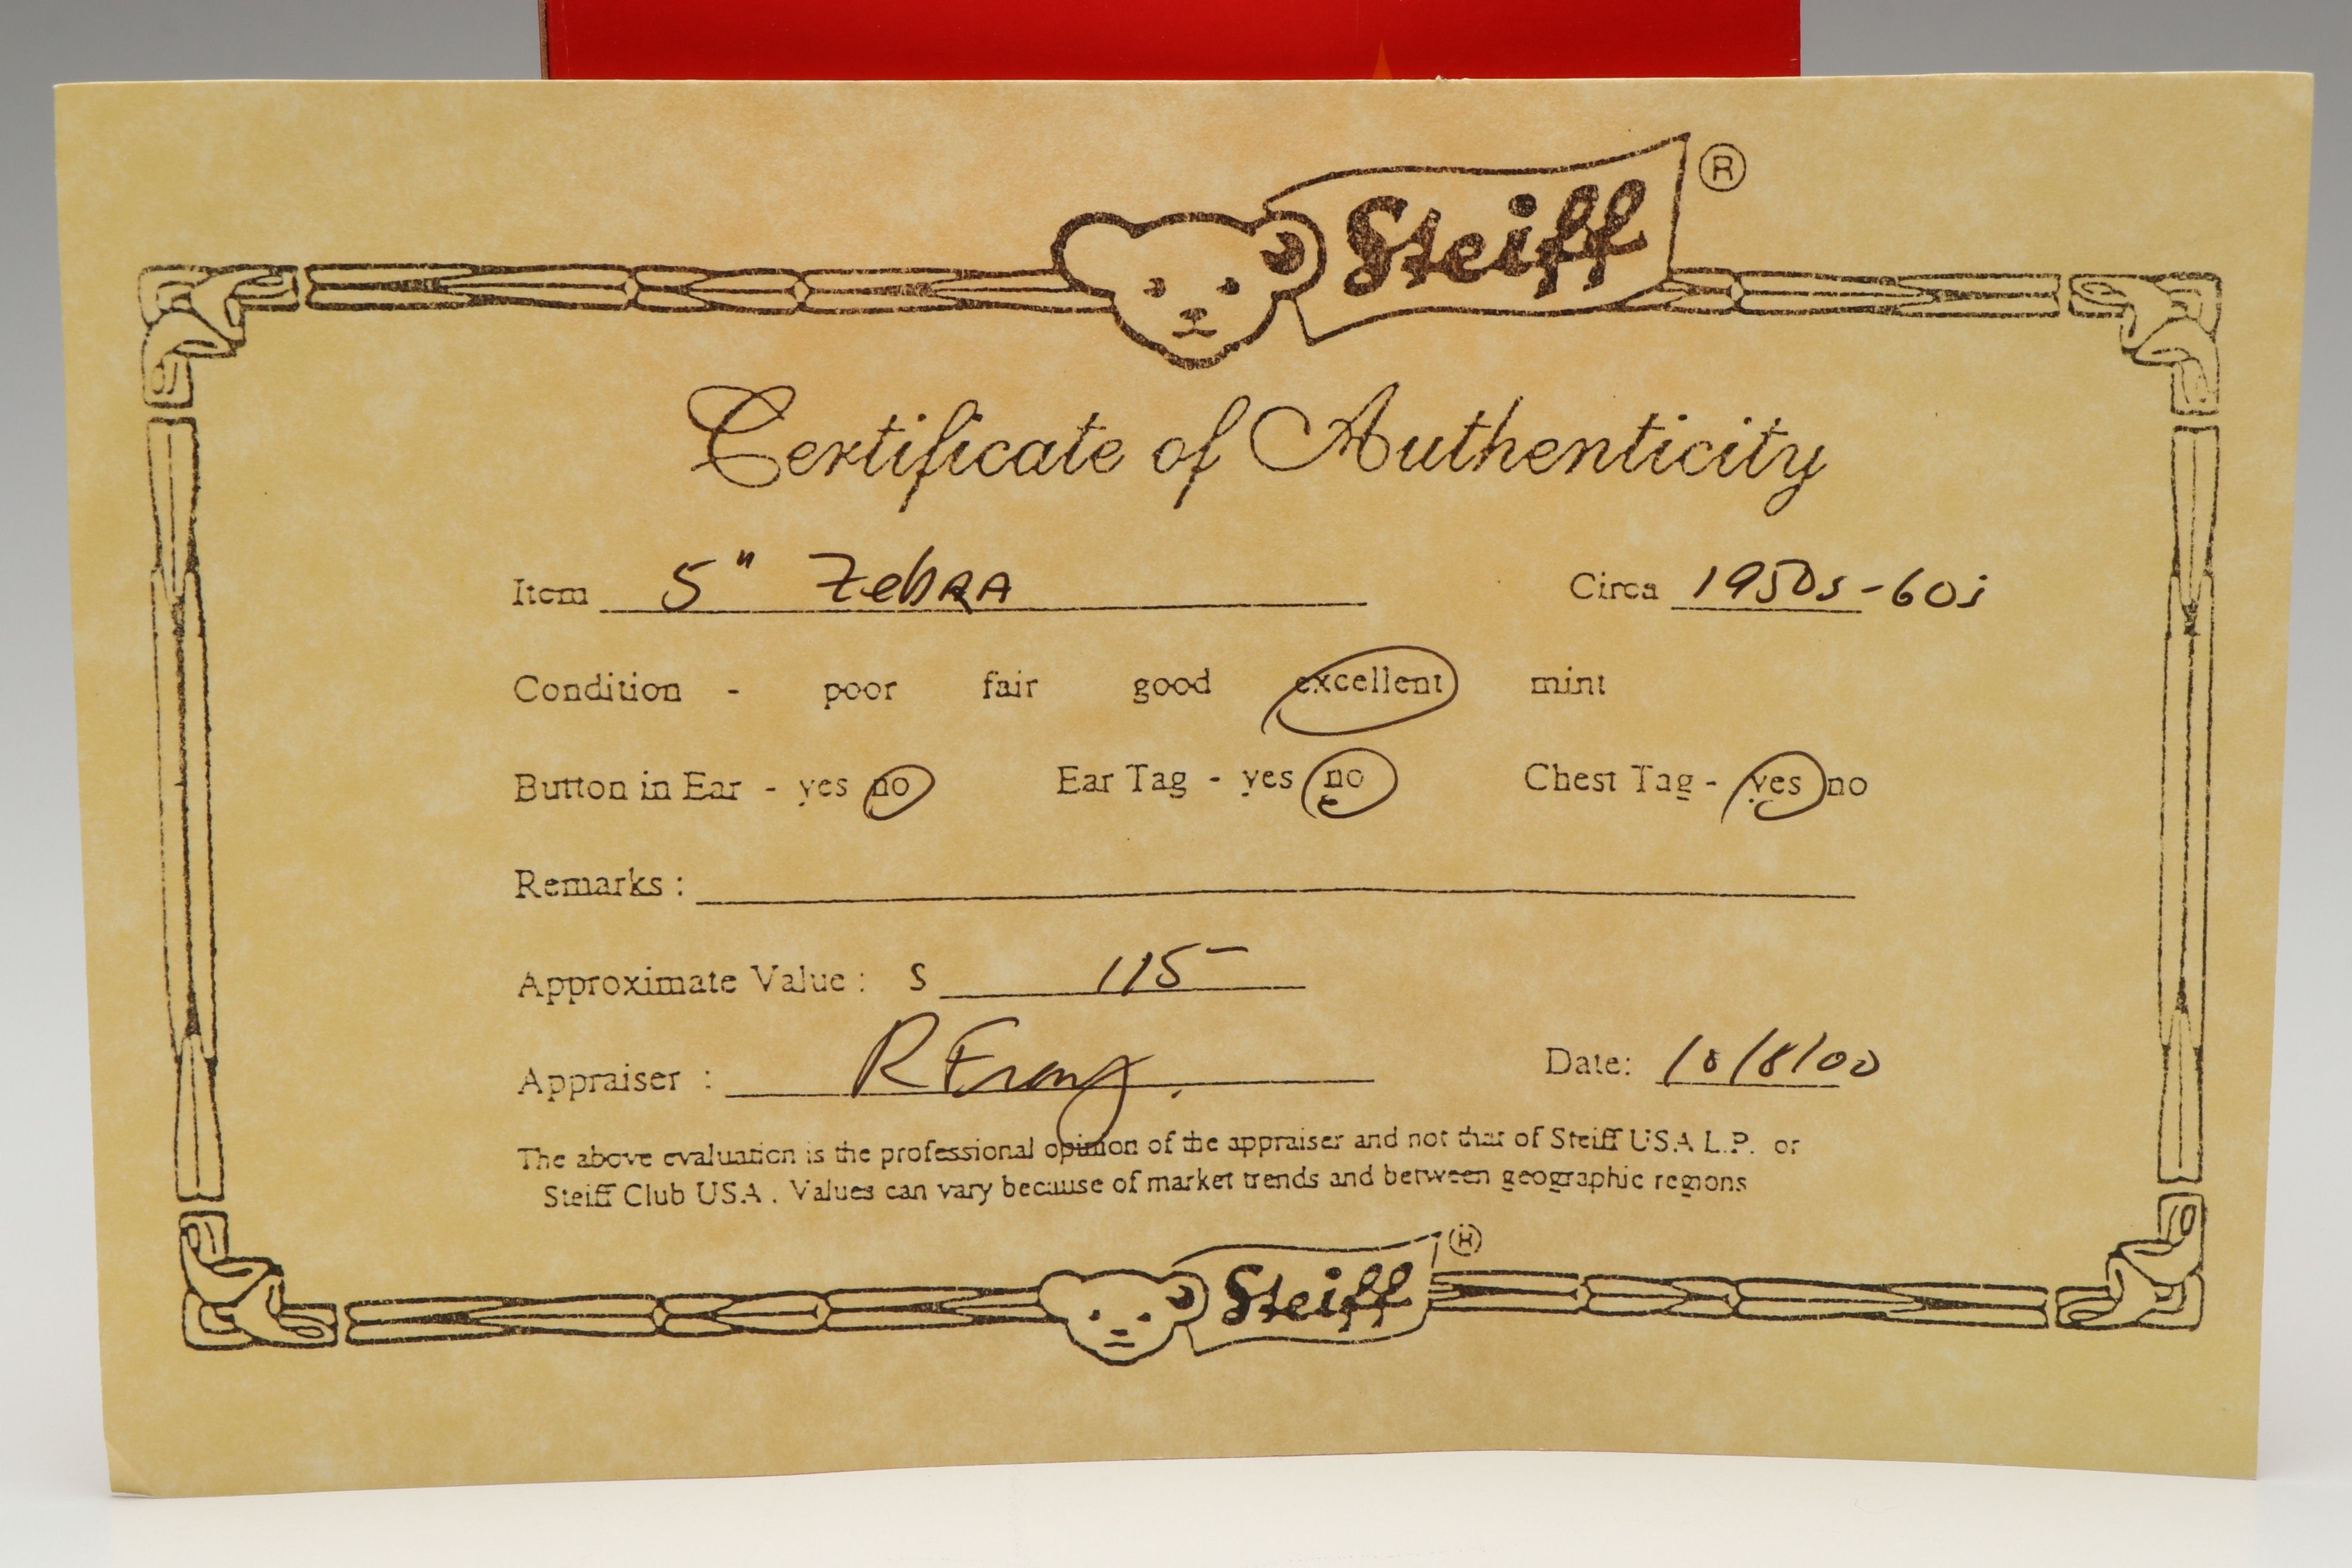 Steiff ®
Certificate of Authenticity
Item 5" Zebra Circa 1950s-60s
Condition - poor fair good excellent mint
Button in Ear - yes no Ear Tag - yes no Chest Tag - yes no
Remarks :
Approximate Value : $ 115-
Appraiser : R Date: 10/8/00
The above evaluation is the professional opinion of the appraiser and not that of Steiff USA L.P. or
Steiff Club USA. Values can vary because of market trends and between geographic regions
Steiff ®